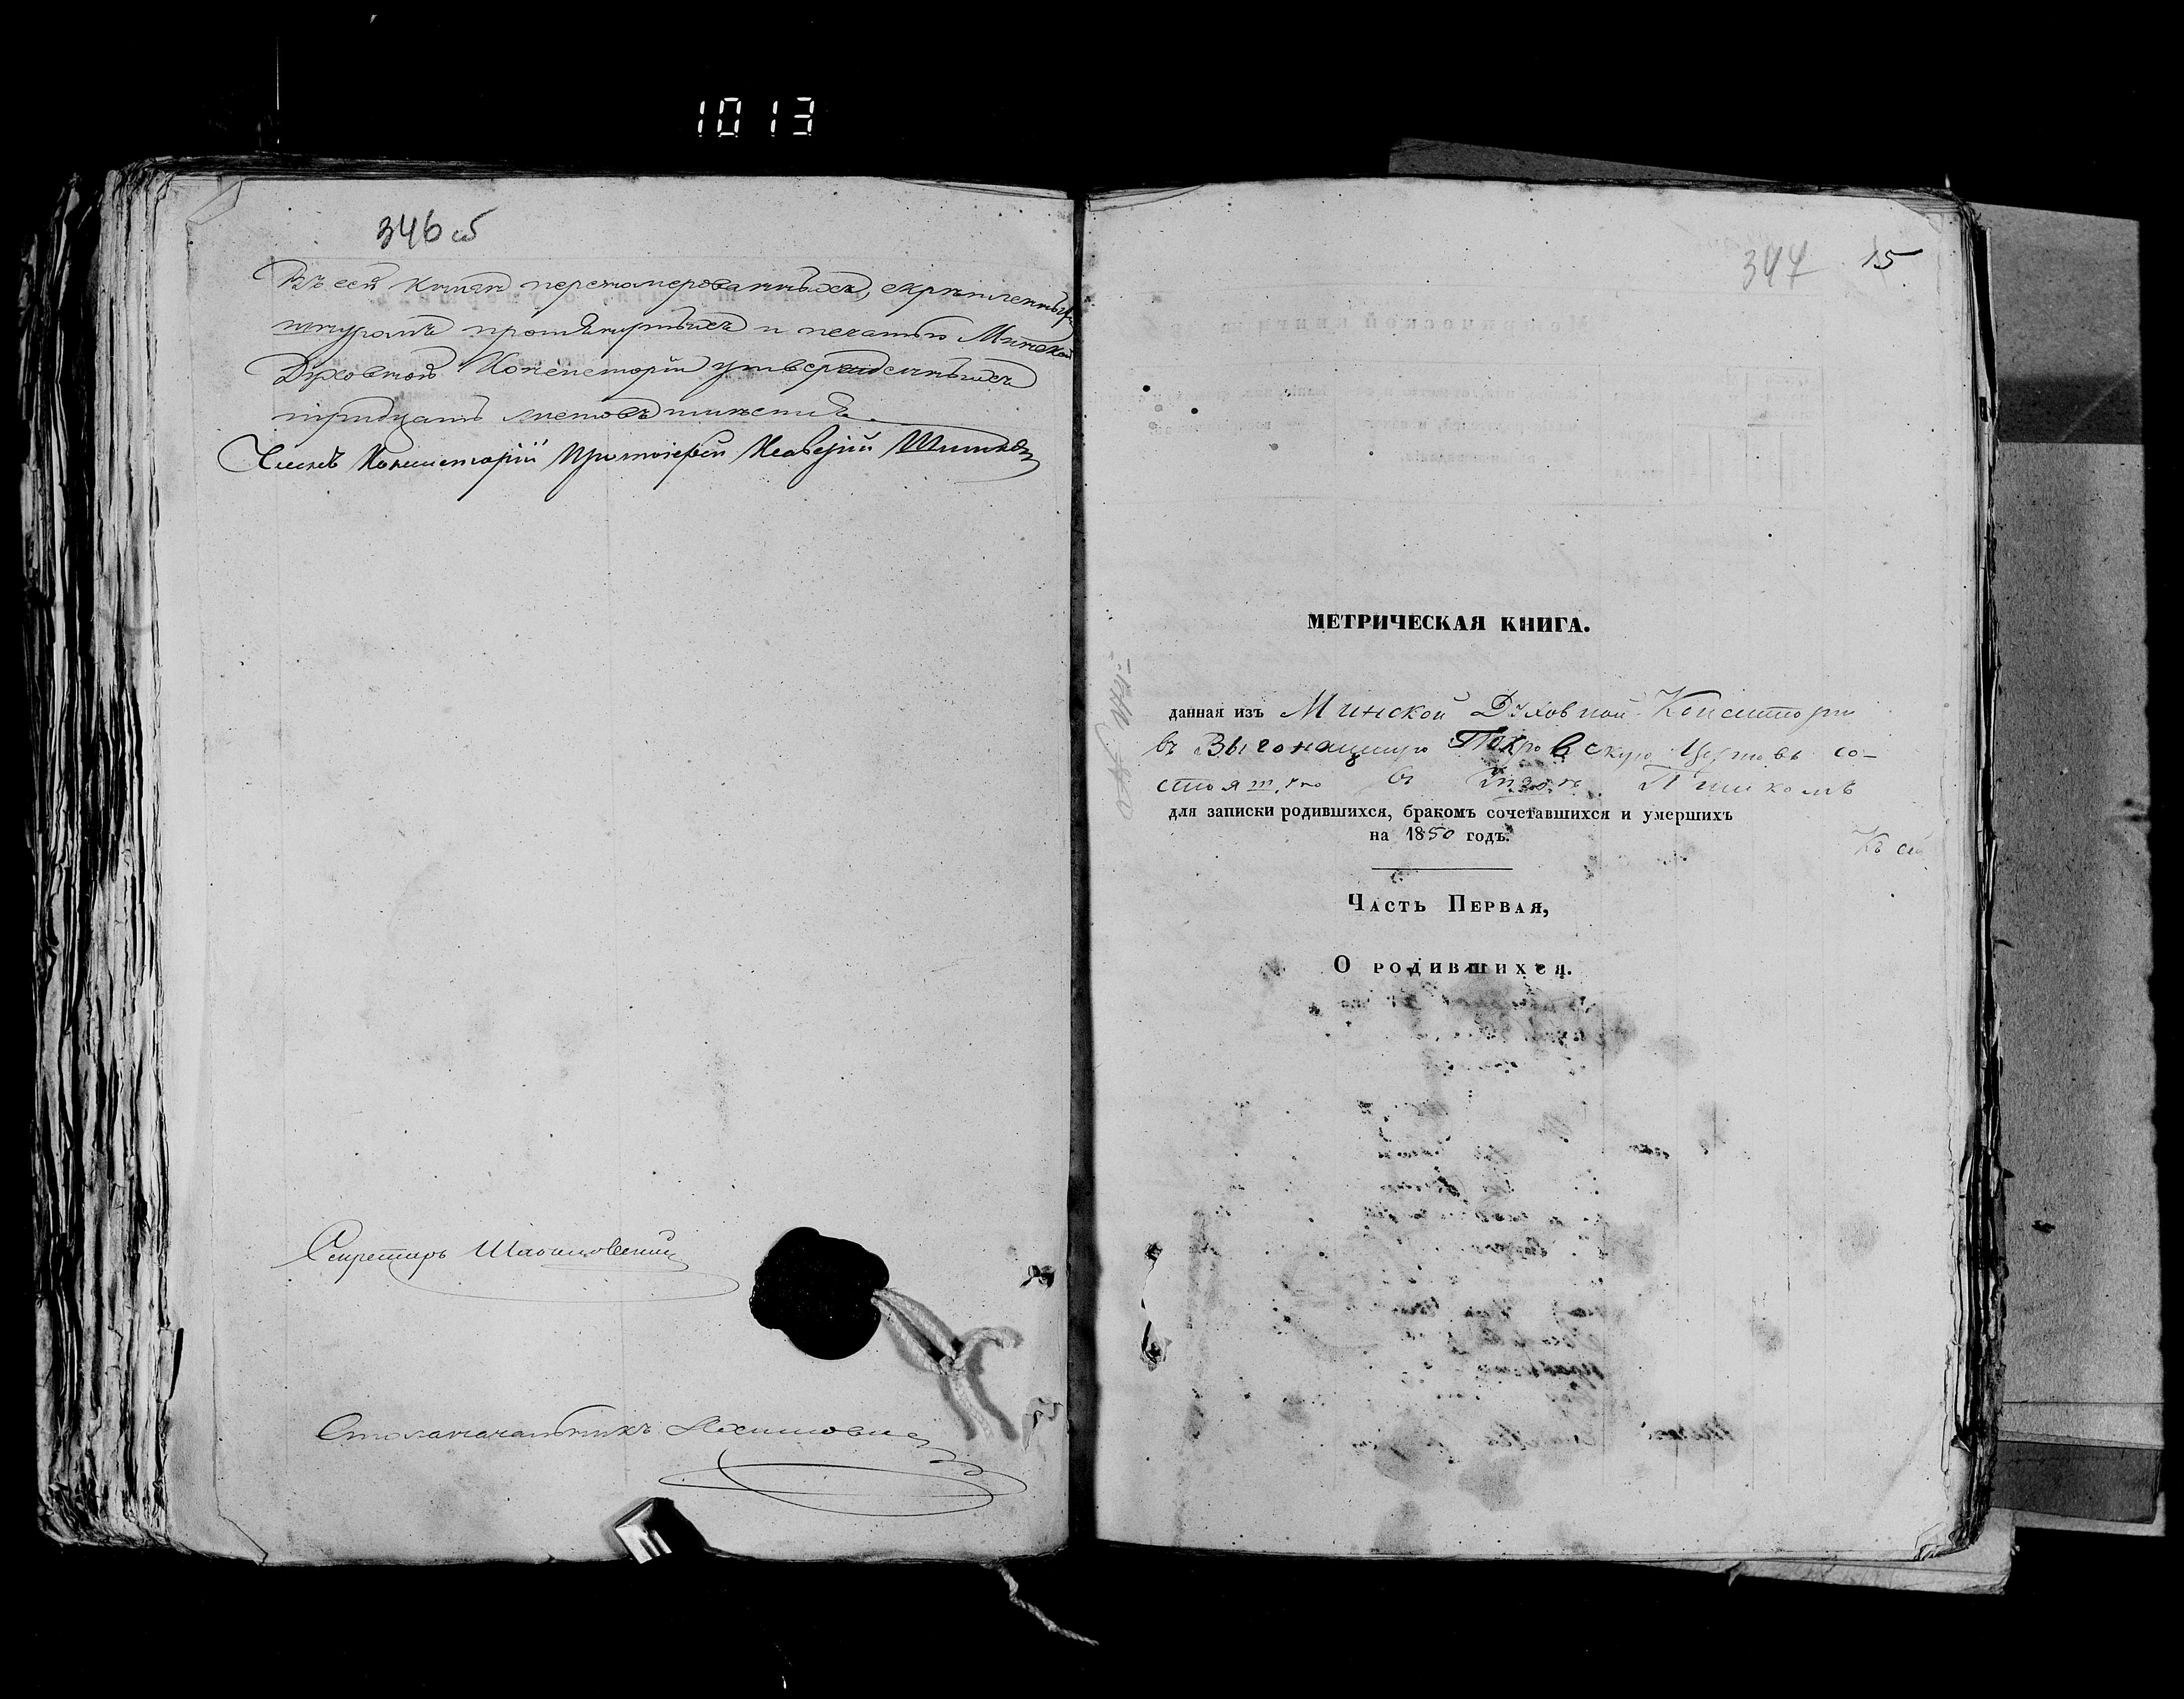 1013
346 об
Въ сей книгѣ перенумерованныхъ, скрѣпленныхъ
шнуромъ прошнурныхъ и печатью Минской
Духовной Консисторіи утвержденныхъ
тридцать листовъ
Членъ Консисторіи Протоіерей
Секретарь
Столоначальникъ
347 15
МЕТРИЧЕСКАЯ КНИГА.
данная изъ Минской Духовной Консисторіи
въ Выгонащскую Покровскую Церковь со-
стоящую въ Пинскомъ
для записки родившихся, бракомъ сочетавшихся и умершихъ
на 1850 годъ.
Къ сей
Часть Первая,
О родившихся.